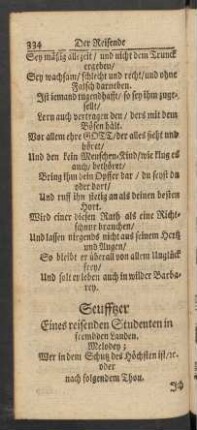 334 Der Reisende
Sey mäßig allezeit / und nicht dem Trunck
ergeben /
Sey wachsam / schlecht und recht / und ohne
Falsch darneben.
Ist iemand tugendhafft / so sey ihm zuge-
sellt /
Lern auch vertragen den / ders mit dem
Bösen hält.
Vor allem ehre GOTT / der alles sieht und
höret /
Und den kein Menschen-Kind / wie klug es
auch / bethöret /
Bring ihm dein Opffer dar / du seyst da
oder dort /
Und ruff ihn stetig an als deinen besten
Hort.
Wird einer diesen Rath als eine Richt-
schnur brauchen /
Und lassen nirgends nicht aus seinem Hertz
und Augen /
So bleibt er überall von allem Unglück
frey /
Und solt er leben auch in wilder Barba-
rey.
Seufftzer
Eines reisenden Studenten in
fremdden Landen.
Melodey:
Wer in dem Schutz des Höchsten ist / ꝛc.
oder
nach folgendem Thon.
Jch